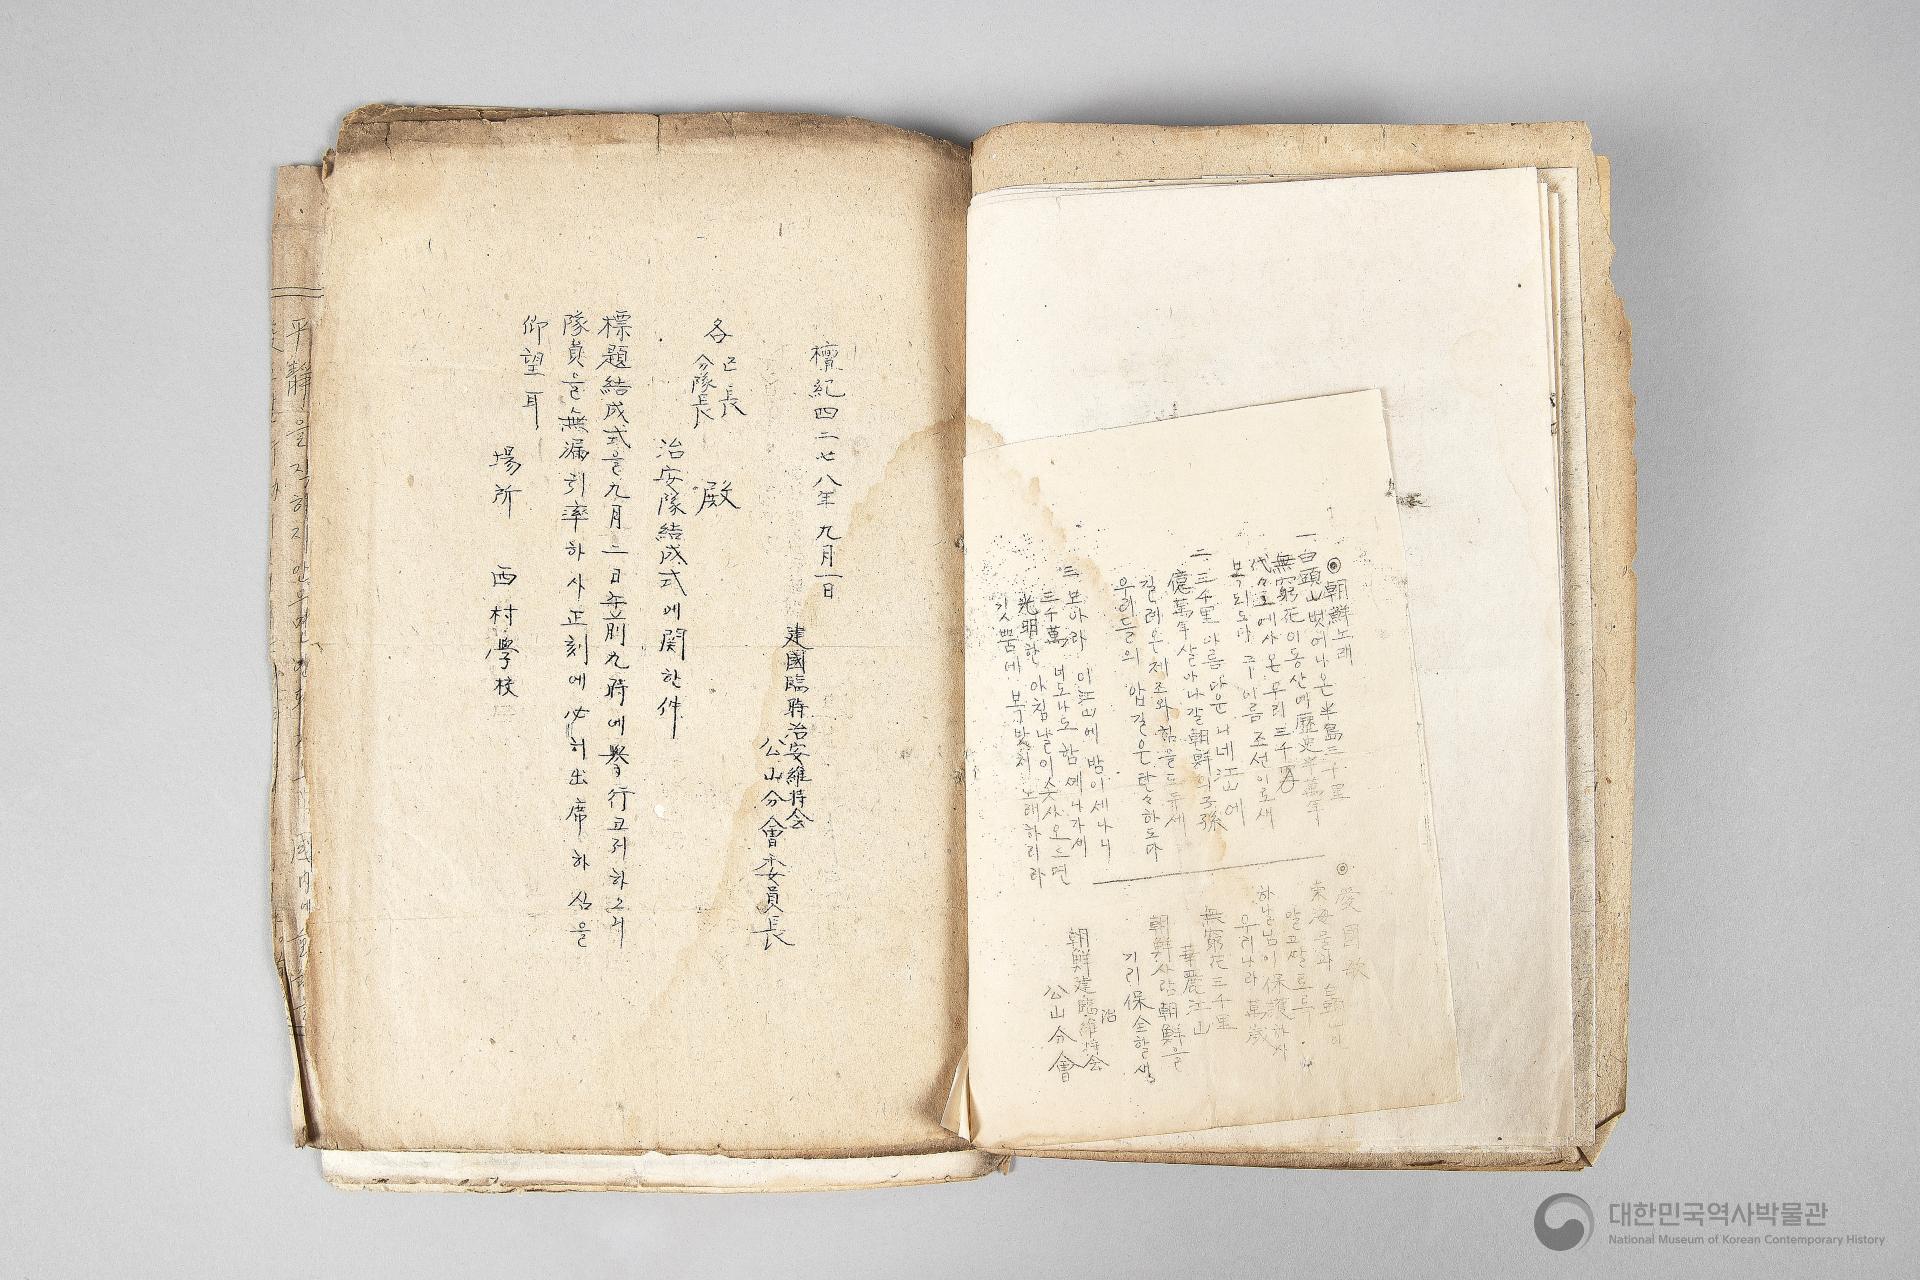 檀紀四二七八年九月一日
建國臨時治安維持会
公山分會委員長
各 区長
分隊長 殿
治安隊結成式에関한件
標題結成式을九月二日午前九時에擧行코저하오니
隊員을無漏引率하사正刻에必히出席하심을
仰望耳
場所 西村學校
平靜을직히지안으면
國内에
◎朝鮮노래
一 白頭山뻣어나온半島三千里
無窮花이동산에歷史半萬年
代々로에사온우리三千万
복되도다 구이름조선이로세
二 三千里아름다운나네江山에
億萬年살아나갈朝鮮의子孫
길러온제조와힘을도두세
우리들의 압길은탄々하도다
三 보아라 이江山에 밤이새나니
三千萬 너도나도함께나가세
光明한아침날이솟사오르면
깃뿜에 복밧처노래하리라
◎愛國歌
東海물과白頭山이
말고달토록
하나님이保護하사
우리나라萬歲
無窮花三千里
華麗江山
朝鮮사람朝鮮을
기리保全할새
朝鮮建臨治維持会
公山分會
대한민국역사박물관
National Museum of Korean Contemporary History